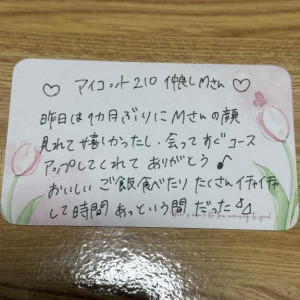 ♡ アイコット210 仲良しMさん ♡
昨日は1カ月ぶりにMさんの顔
見れて嬉しかったし、会ってすぐコース
アップしてくれてありがとう♪
おいしいご飯食べたりたくさんイチャイチャ
して時間あっという間だった